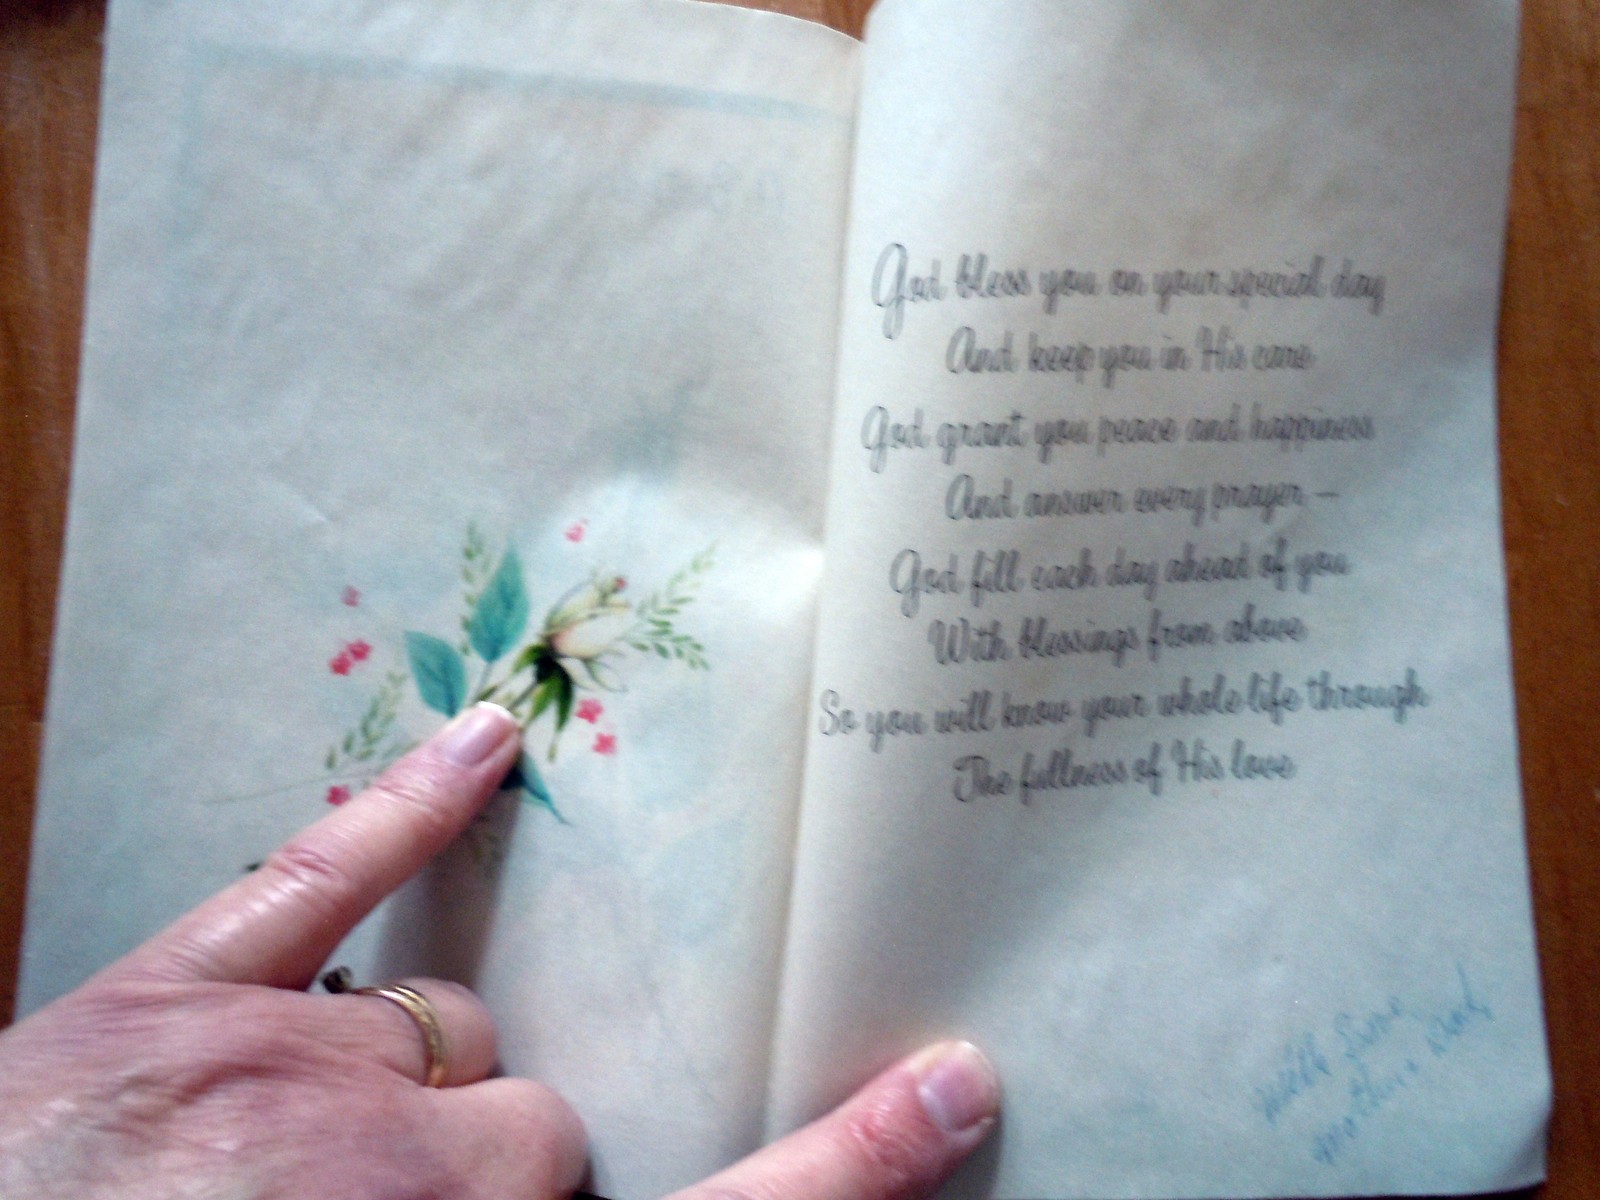 God bless you on your special day
And keep you in His care
God grant you peace and happiness
And answer every prayer —
God fill each day ahead of you
With blessings from above
So you will know your whole life through
The fullness of His love
with
mother & Dad,